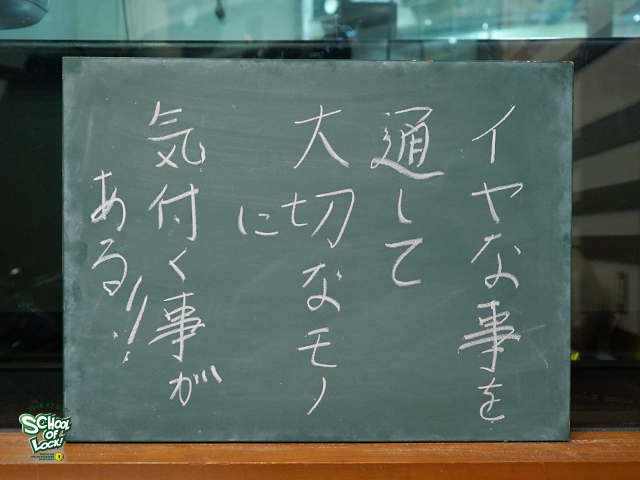 イヤな事を
通して
大切なモノ
に
気付く事が
ある!!
SCHOOL
OF
LOCK!